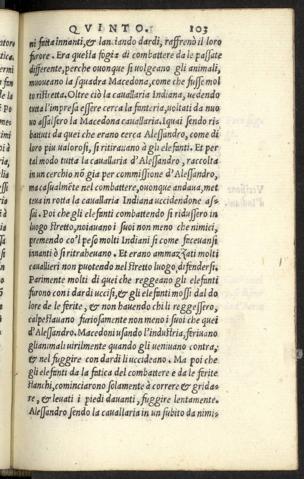 QVINTO. 103
ni fatta innanti, & lanciando dardi, raffrenò il loro
furore. Era questa fogia di combattere da le passate
differente, perche ouonque si uolgeano gli animali,
moueano la squadra Macedona, come che fusse mol
to ristretta. Oltre ciò la cauallaria Indiana, uedendo
tutta l'impresa essere cerca la fanteria, uoltati da nuo
uo assalsero la Macedona cauallaria. I quai sendo ris
battuti da quei che erano cerca Alessandro, come di
loro piu ualorosi, si ritirauano à gli elefanti. Et per
tal modo tutta la cauallaria d'Alessandro, raccolta
in un cerchio nõ gia per commissione d'Alessandro,
ma casualmẽte nel combattere, ouonque andaua, met
teua in rotta la cauallaria Indiana uccidendone as-
sai. Poi che gli elefanti combattendo si ridussero in
luogo stretto, noiauano i suoi non meno che nimici,
premendo co'l peso molti Indiani si come faceuansi
innanti ò si ritrabeuano. Et erano ammazzati molti
cauallieri non puotendo nel stretto luogo difendersi.
Parimente molti di quei che reggeano gli elefanti
furono con i dardi uccisi, & gli elefanti mossi dal do
lore de le ferite, & non hauendo chi li reggessero,
calpestauano furiosamente non meno i suoi che quei
d'Alessandro. Macedoni usando l'industria, feriuano
gli animali uirilmente quando gli ueniuano contra;
& nel fuggire con dardi li uccideano. Ma poi che
gli elefanti da la fatica del combattere e da le ferite
stanchi, cominciarono solamente à correre & grida-
re, & leuati i piedi dauanti, fuggire lentamente.
Alessandro sendo la cauallaria in un subito da nimi-